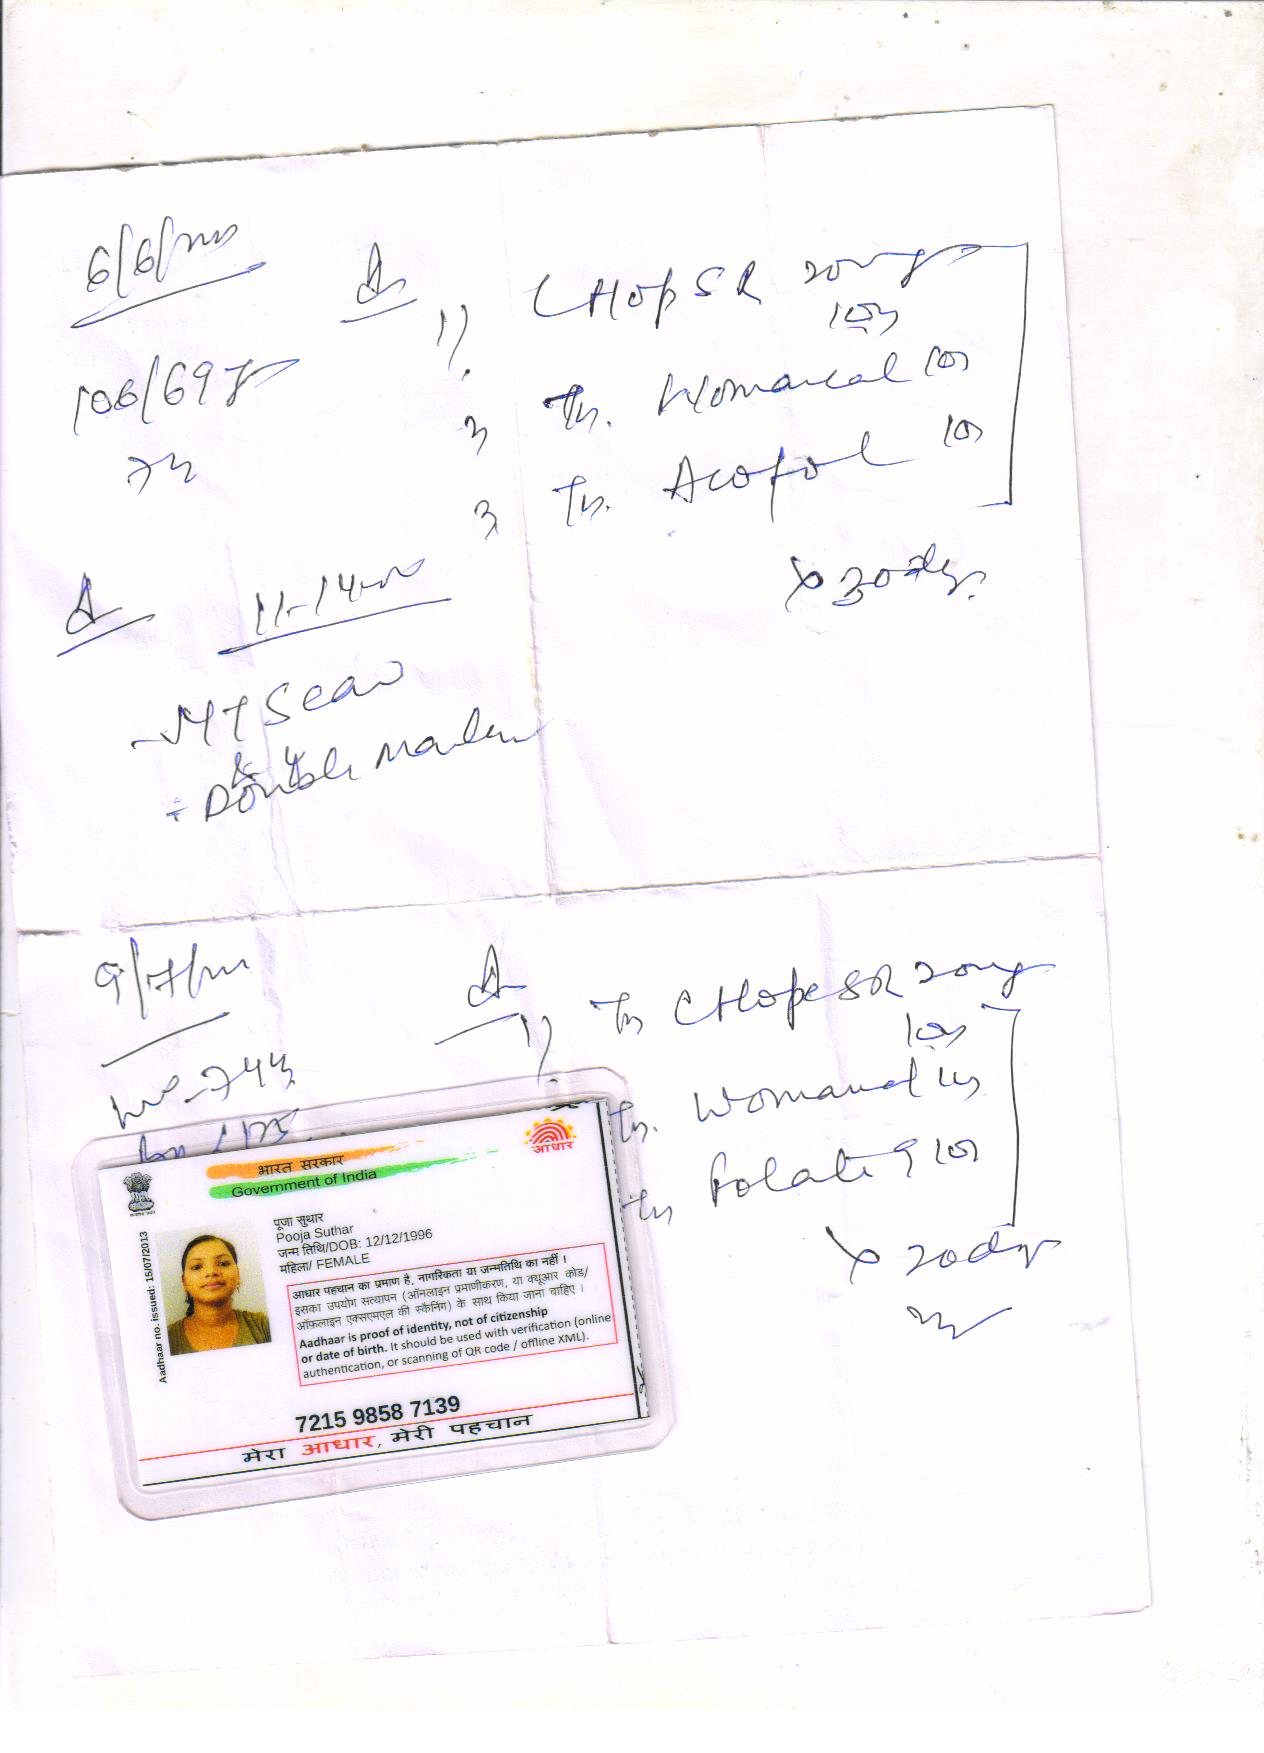 6/6/
106/69
1) CHOP SR 20mg
10
Tb. Womacal 10
3 Tb. Acofol 10
x 30 days
11-14
- NT Scan
- Double Marker
9/7/
1) Tb CHope SR 20mg
10
Tb. Womacal
Tb Folate 9
x 20 days
भारत सरकार
Government of India
आधार
पूजा सुथार
Pooja Suthar
जन्म तिथि/DOB: 12/12/1996
महिला/ FEMALE
Aadhaar no. issued: 15/07/2013
आधार पहचान का प्रमाण है, नागरिकता या जन्मतिथि का नहीं ।
इसका उपयोग सत्यापन (ऑनलाइन प्रमाणीकरण, या क्यूआर कोड/
ऑफलाइन एक्सएमएल की स्कैनिंग) के साथ किया जाना चाहिए ।
Aadhaar is proof of identity, not of citizenship
or date of birth. It should be used with verification (online
authentication, or scanning of QR code / offline XML).
7215 9858 7139
मेरा आधार, मेरी पहचान